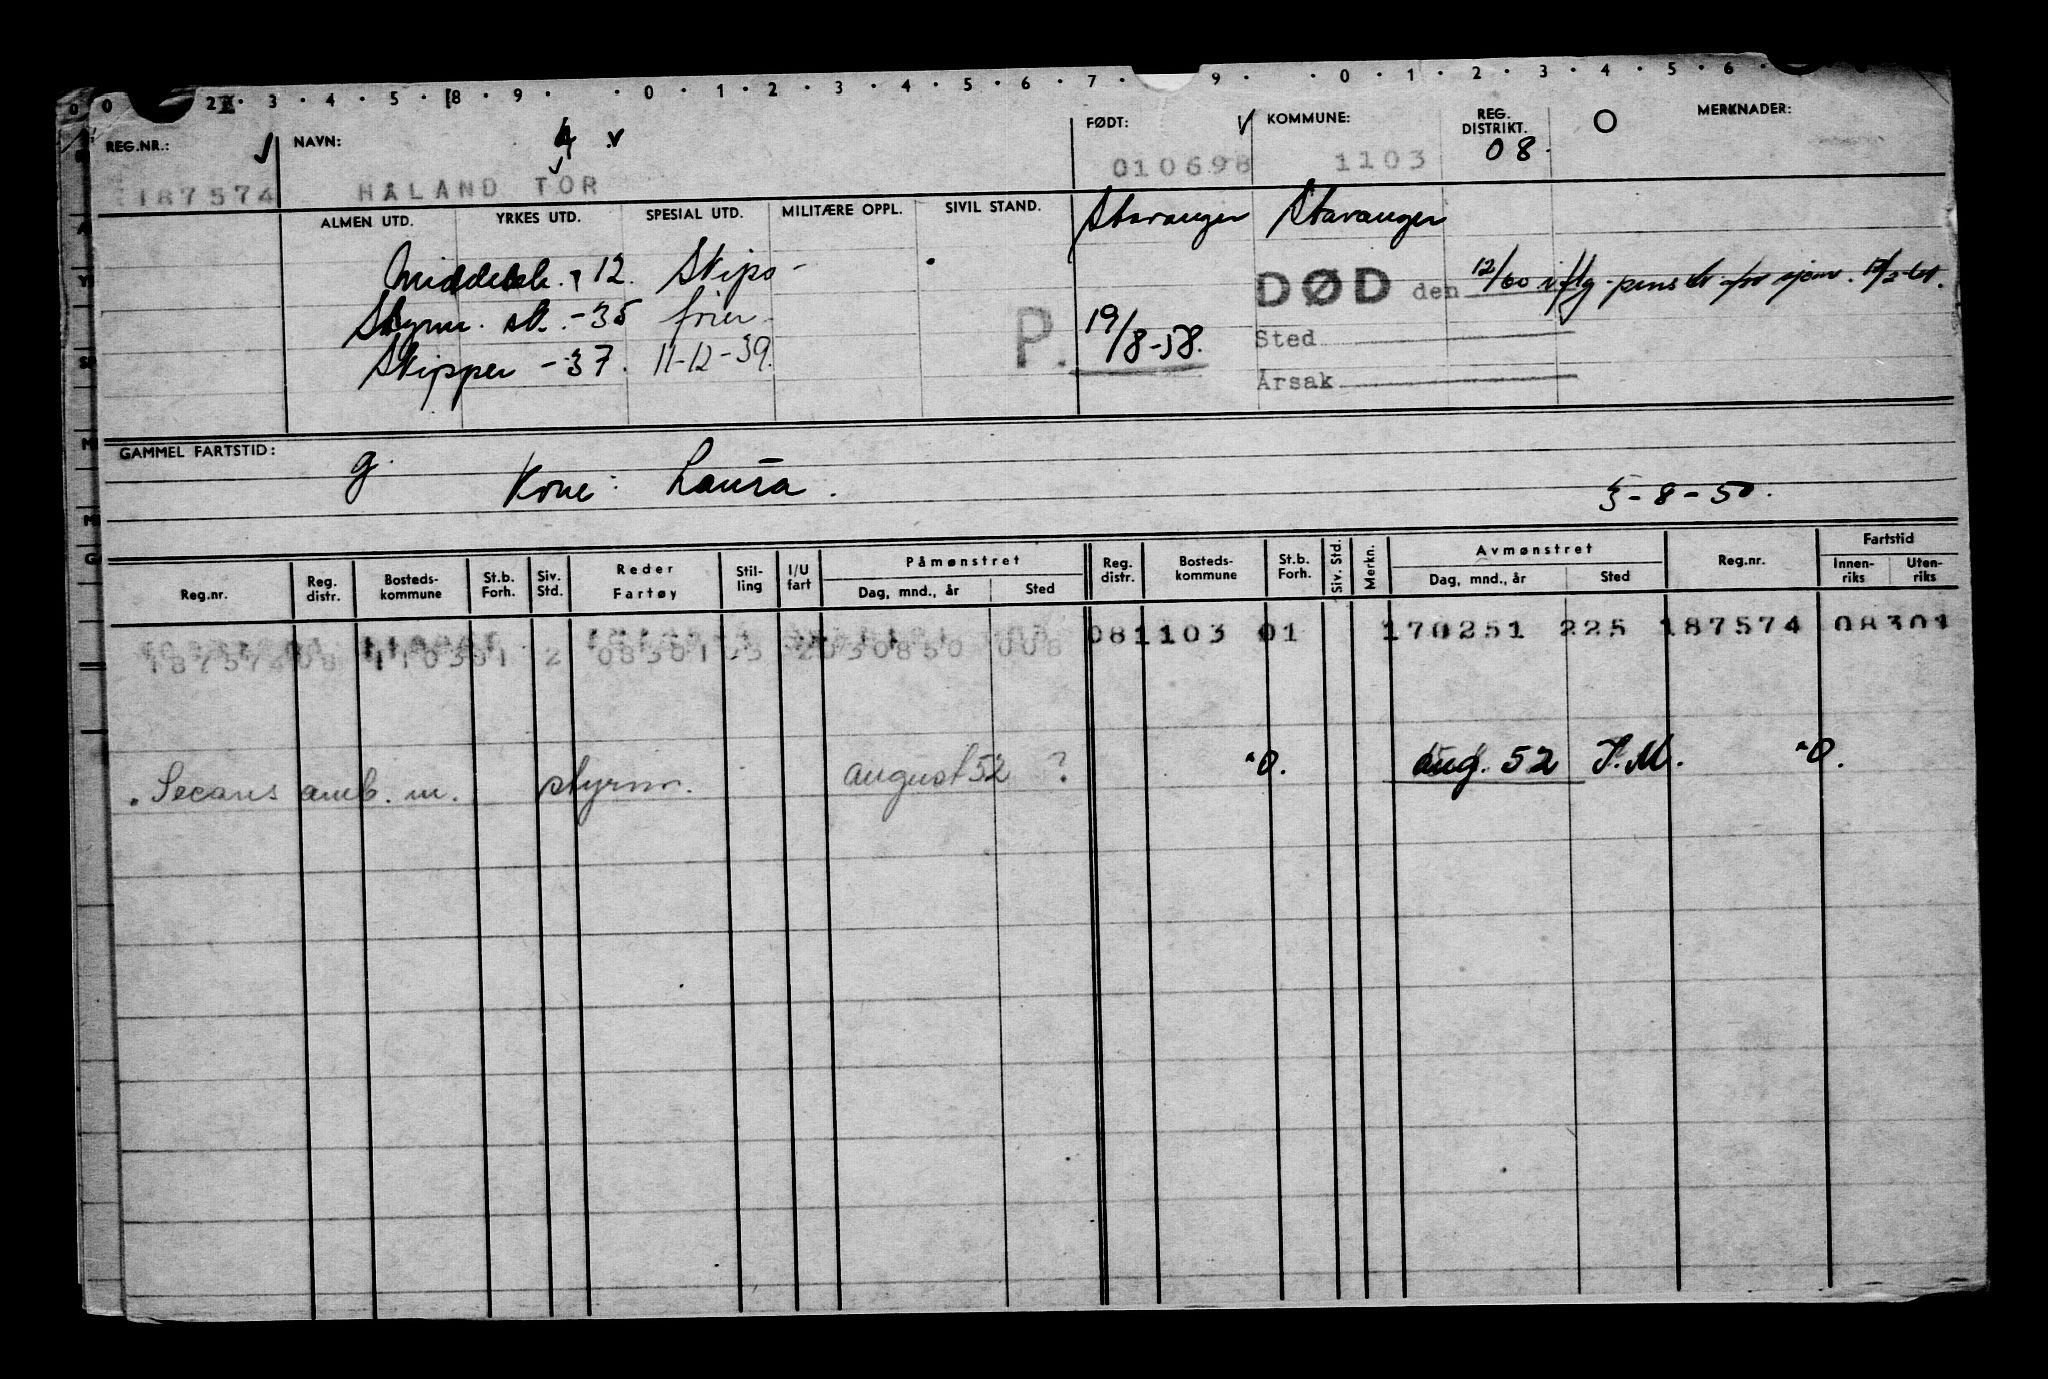 0 . 2 . 3 . 4 . 5 . 8 . 9 . . 0 . 1 . 2 . 3 . 4 . 5 . 6 . 7 . 9 . . 0 . 1 . 2 . 3 . 4 . 5 . 6 .
REG.NR.: NAVN: FØDT: KOMMUNE: REG. DISTRIKT. MERKNADER:
187574 HALAND TOR 010698 1103 08.
ALMEN UTD. YRKES UTD. SPESIAL UTD. MILITÆRE OPPL. SIVIL STAND. Stavanger Stavanger
Middelsk. 12. Skips-
DØD den 12/60 iflg. pens
Styrm. sk. -35 fører
P. 19/8-58. Sted
Skipper -37. 11-12-39.
Årsak
GAMMEL FARTSTID: g.
Kone: Laura. 3-8-50.
Reg.nr. Reg. distr. Bosteds-kommune St.b. Forh. Siv. Std. Reder Fartøy Stil-ling I/U fart Påmønstret Dag, mnd., år Sted Reg. distr. Bosteds-kommune St.b. Forh. Siv. Std. Merkn. Avmønstret Dag, mnd., år Sted Reg.nr. Fartstid Innen-riks Uten-riks
081103 01 170251 225 187574 08301
187574 08 1103 2 08301 030850 008
. Secans amb. m. styrm. august 52 ? "O. aug. 52 P.M. "O.